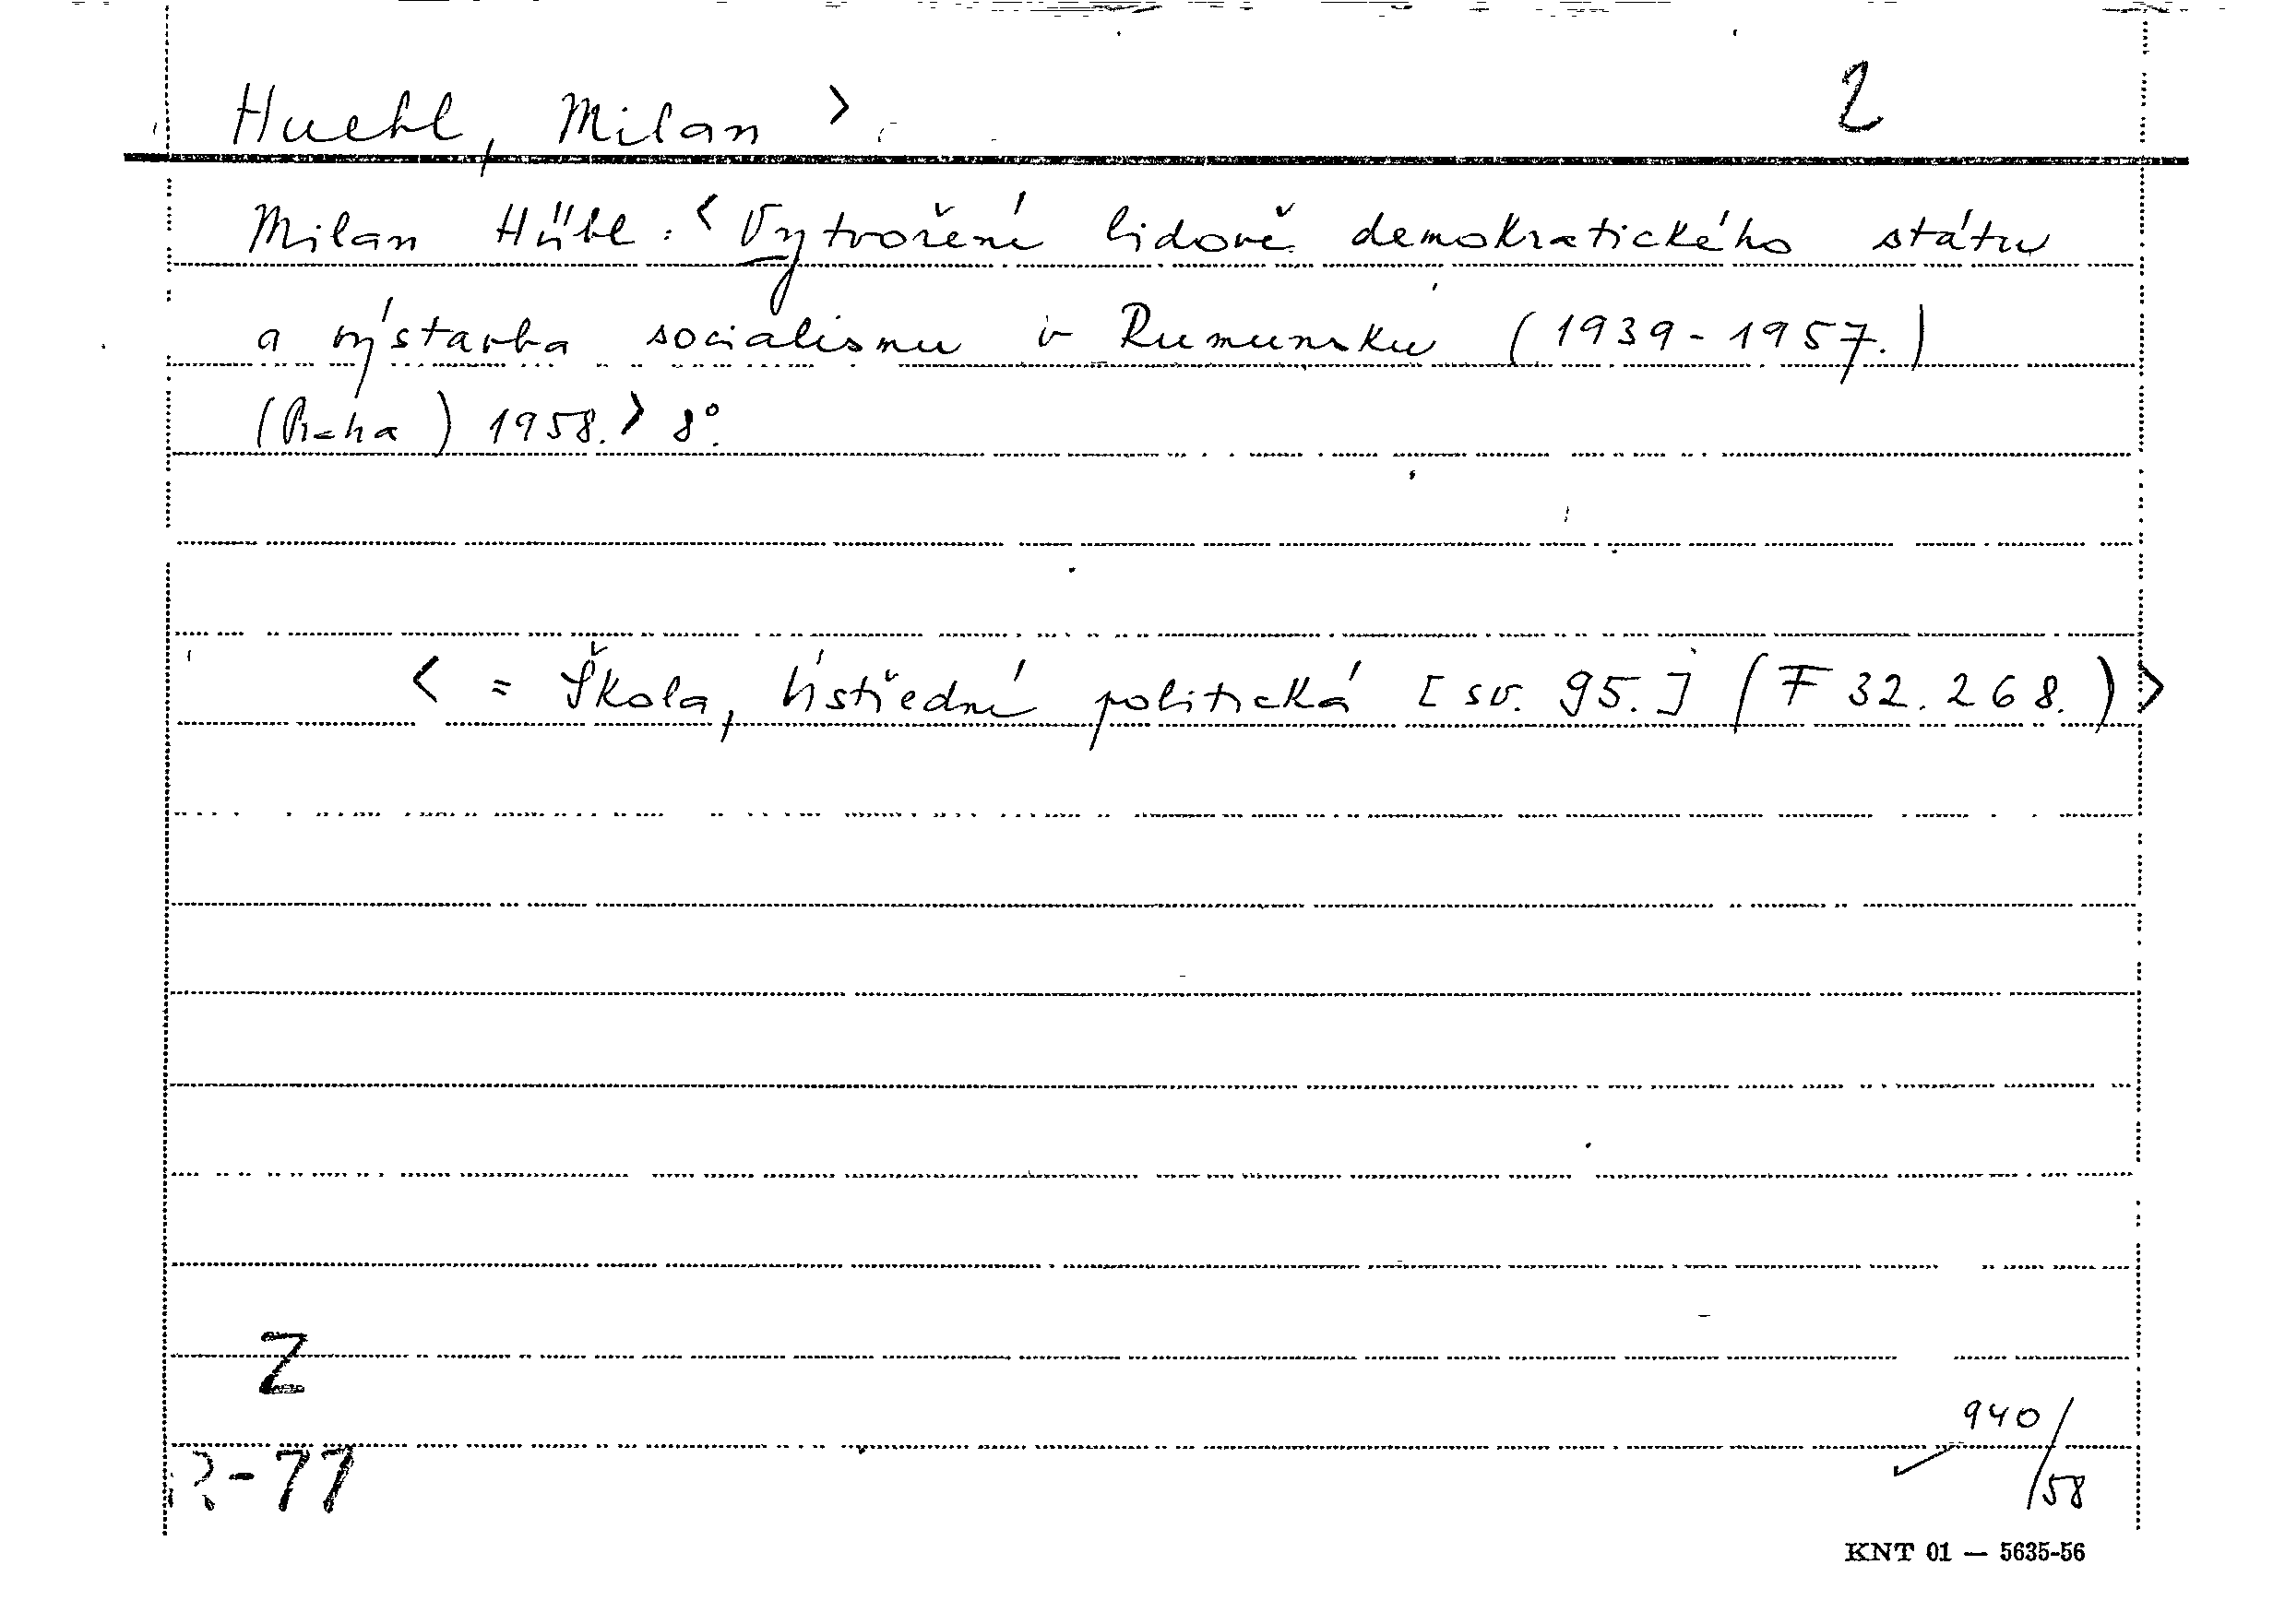 Huebl, Milan > 2
Milan Hübl: < Vytvoření lidově demokratického státu
a výstavba socialismu v Rumunsku (1939-1957.)
(Praha) 1958. > 8°.
< = Škola, Ústřední politická [sv. 95.] (F 32.268.) >
Z
940/
-77
/58
KNT 01 — 5635-56